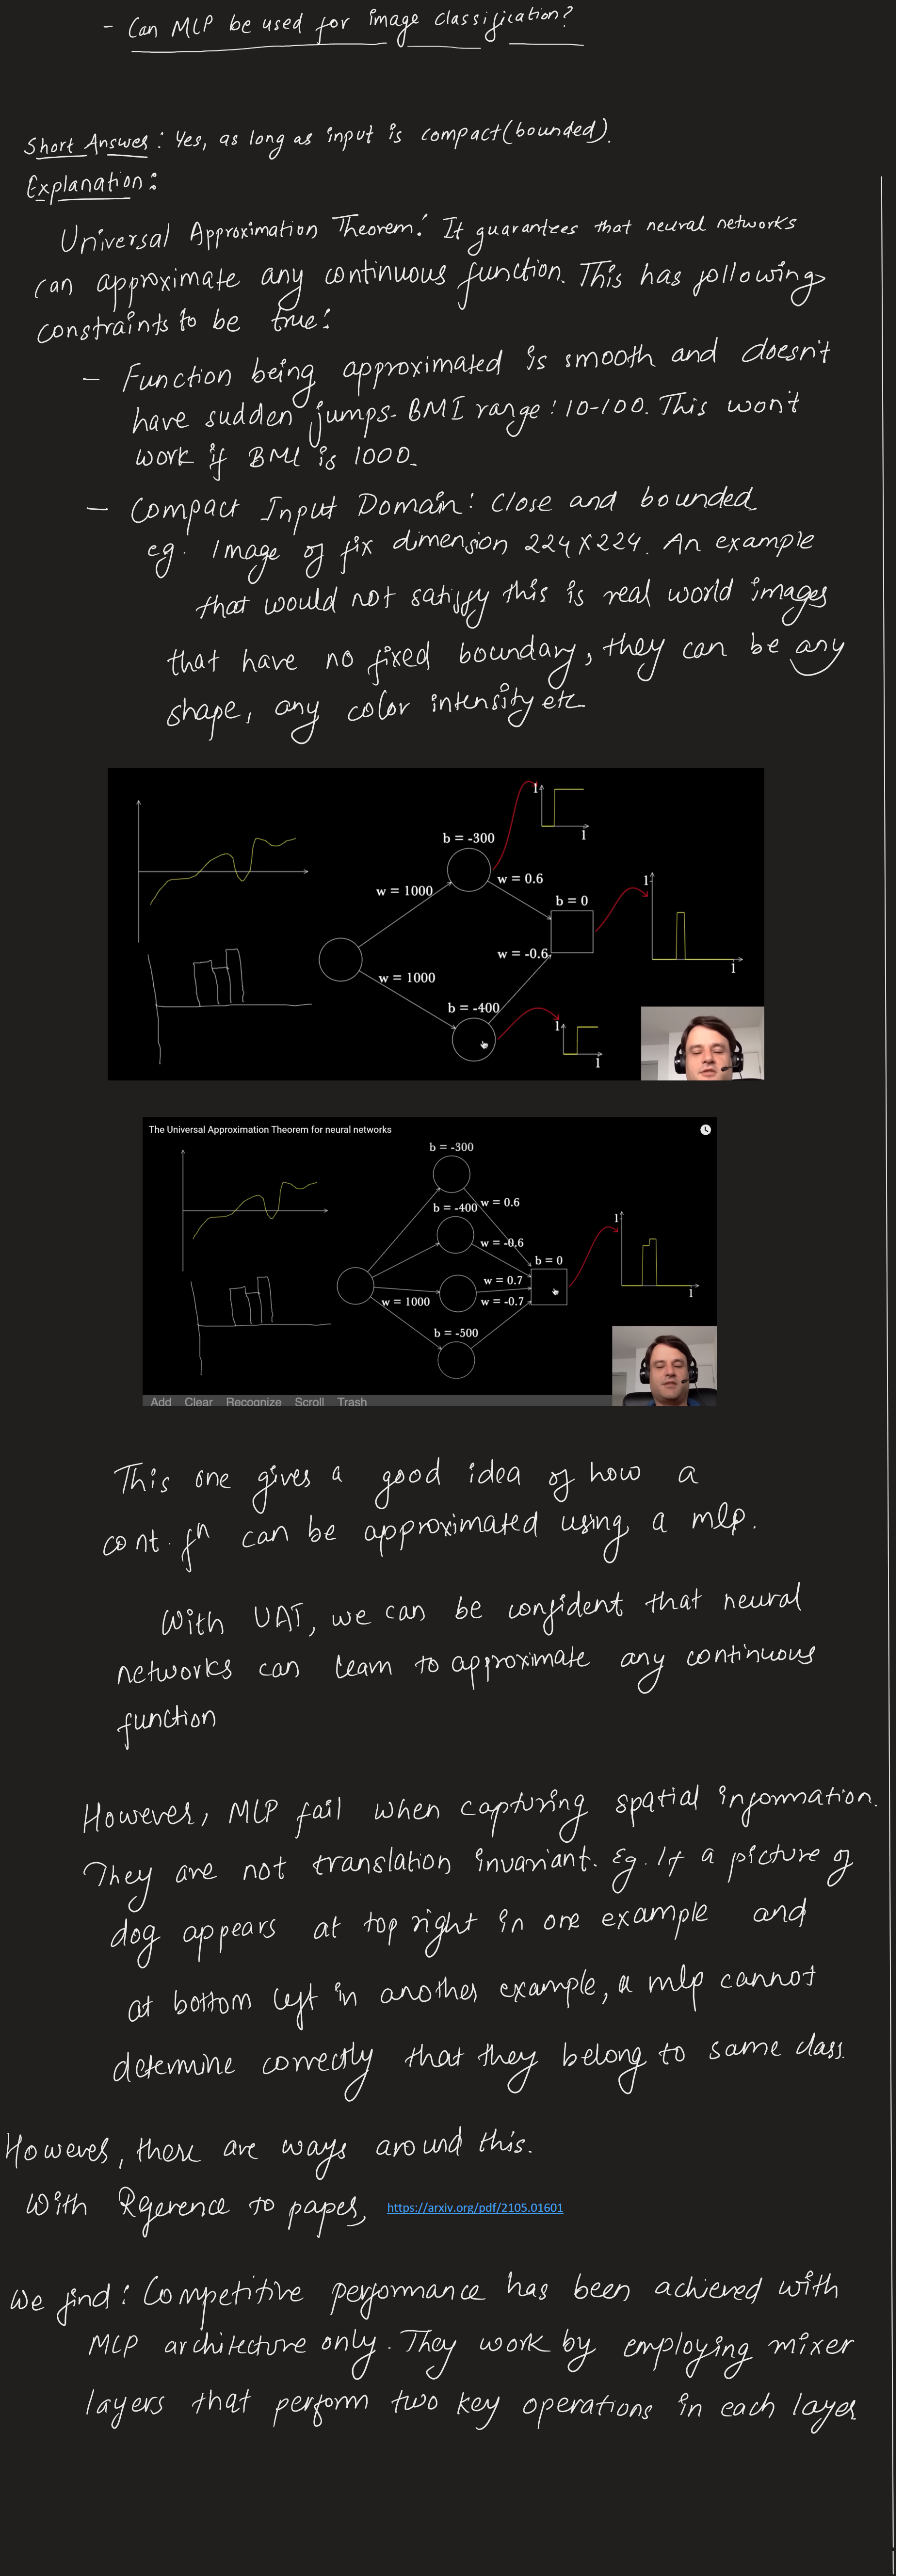 - Can MLP be used for image classification?
Short Answer: Yes, as long as input is compact(bounded).
Explanation:
Universal Approximation Theorem: It guarantees that neural networks
can approximate any continuous function. This has following
constraints to be true:
- Function being approximated is smooth and doesn't
have sudden jumps. BMI range: 10-100. This won't
work if BMI is 1000.
- Compact Input Domain: Close and bounded
eg. Image of fix dimension 224X224. An example
that would not satisfy this is real world images
that have no fixed boundary, they can be any
shape, any color intensity etc
1
1
b = -300
w = 0.6
w = 1000
b = 0
1
1
w = -0.6
w = 1000
b = -400
1
1
The Universal Approximation Theorem for neural networks
b = -300
w = 0.6
b = -400
w = -0.6
b = 0
1
1
w = 0.7
w = 1000
w = -0.7
b = -500
Add Clear Recognize Scroll Trash
This one gives a good idea of how a
cont. fn can be approximated using a mlp.
With UAT, we can be confident that neural
networks can learn to approximate any continuous
function
However, MLP fail when capturing spatial information.
They are not translation invariant. Eg. If a picture of
dog appears at top right in one example and
at bottom left in another example, a mlp cannot
determine correctly that they belong to same class.
However, there are ways around this.
With Reference to paper, https://arxiv.org/pdf/2105.01601
We find: Competitive performance has been achieved with
MLP architecture only. They work by employing mixer
layers that perform two key operations in each layer